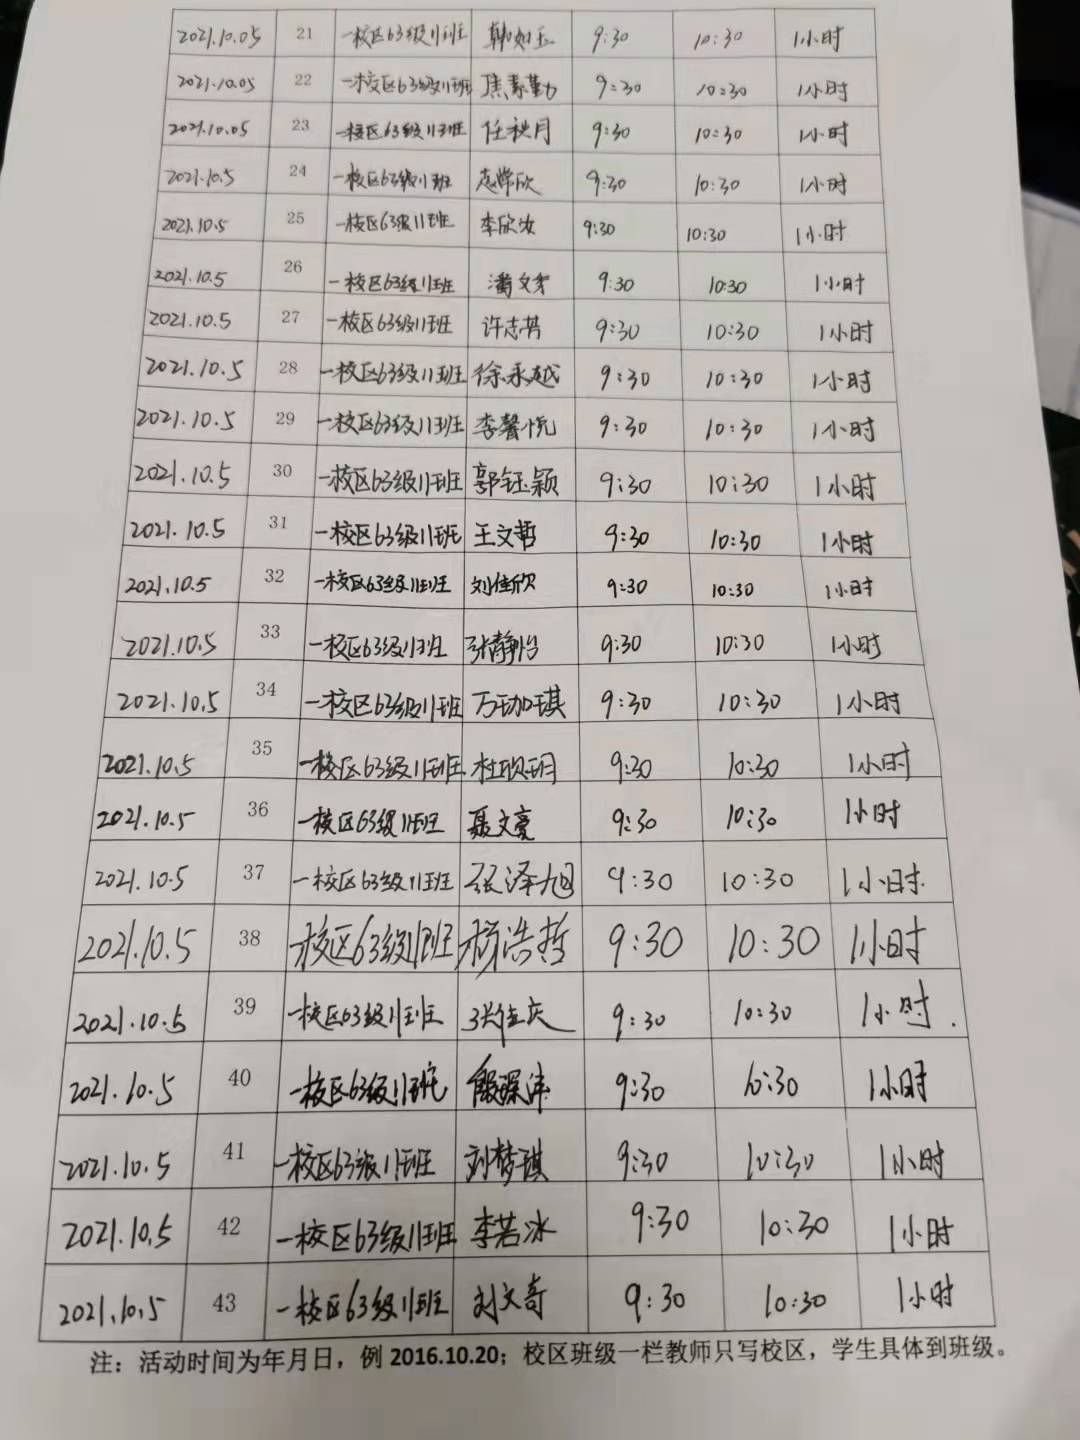 2021.10.05 21 一校区63级11班 韩如玉 9:30 10:30 1小时
2021.10.05 22 一校区63级11班 焦素勤 9:30 10:30 1小时
2021.10.05 23 一校区63级11班 任秋月 9:30 10:30 1小时
2021.10.5 24 一校区63级11班 9:30 10:30 1小时
2021.10.5 25 一校区63级11班 李欣汝 9:30 10:30 1小时
2021.10.5 26 一校区63级11班 潘文 9:30 10:30 1小时
2021.10.5 27 一校区63级11班 许志 9:30 10:30 1小时
2021.10.5 28 一校区63级11班 徐永越 9:30 10:30 1小时
2021.10.5 29 一校区63级11班 李馨悦 9:30 10:30 1小时
2021.10.5 30 一校区63级11班 郭钰颖 9:30 10:30 1小时
2021.10.5 31 一校区63级11班 王文哲 9:30 10:30 1小时
2021.10.5 32 一校区63级11班 刘佳欣 9:30 10:30 1小时
2021.10.5 33 一校区63级11班 张静怡 9:30 10:30 1小时
2021.10.5 34 一校区63级11班 万珈琪 9:30 10:30 1小时
2021.10.5 35 一校区63级11班 杜欣玥 9:30 10:30 1小时
2021.10.5 36 一校区63级11班 聂文亮 9:30 10:30 1小时
2021.10.5 37 一校区63级11班 张泽旭 9:30 10:30 1小时
2021.10.5 38 一校区63级11班 杨浩哲 9:30 10:30 1小时
2021.10.5 39 一校区63级11班 9:30 10:30 1小时
2021.10.5 40 一校区63级11班 9:30 10:30 1小时
2021.10.5 41 一校区63级11班 刘梦琪 9:30 10:30 1小时
2021.10.5 42 一校区63级11班 李若冰 9:30 10:30 1小时
2021.10.5 43 一校区63级11班 刘文奇 9:30 10:30 1小时
注：活动时间为年月日，例 2016.10.20；校区班级一栏教师只写校区，学生具体到班级。